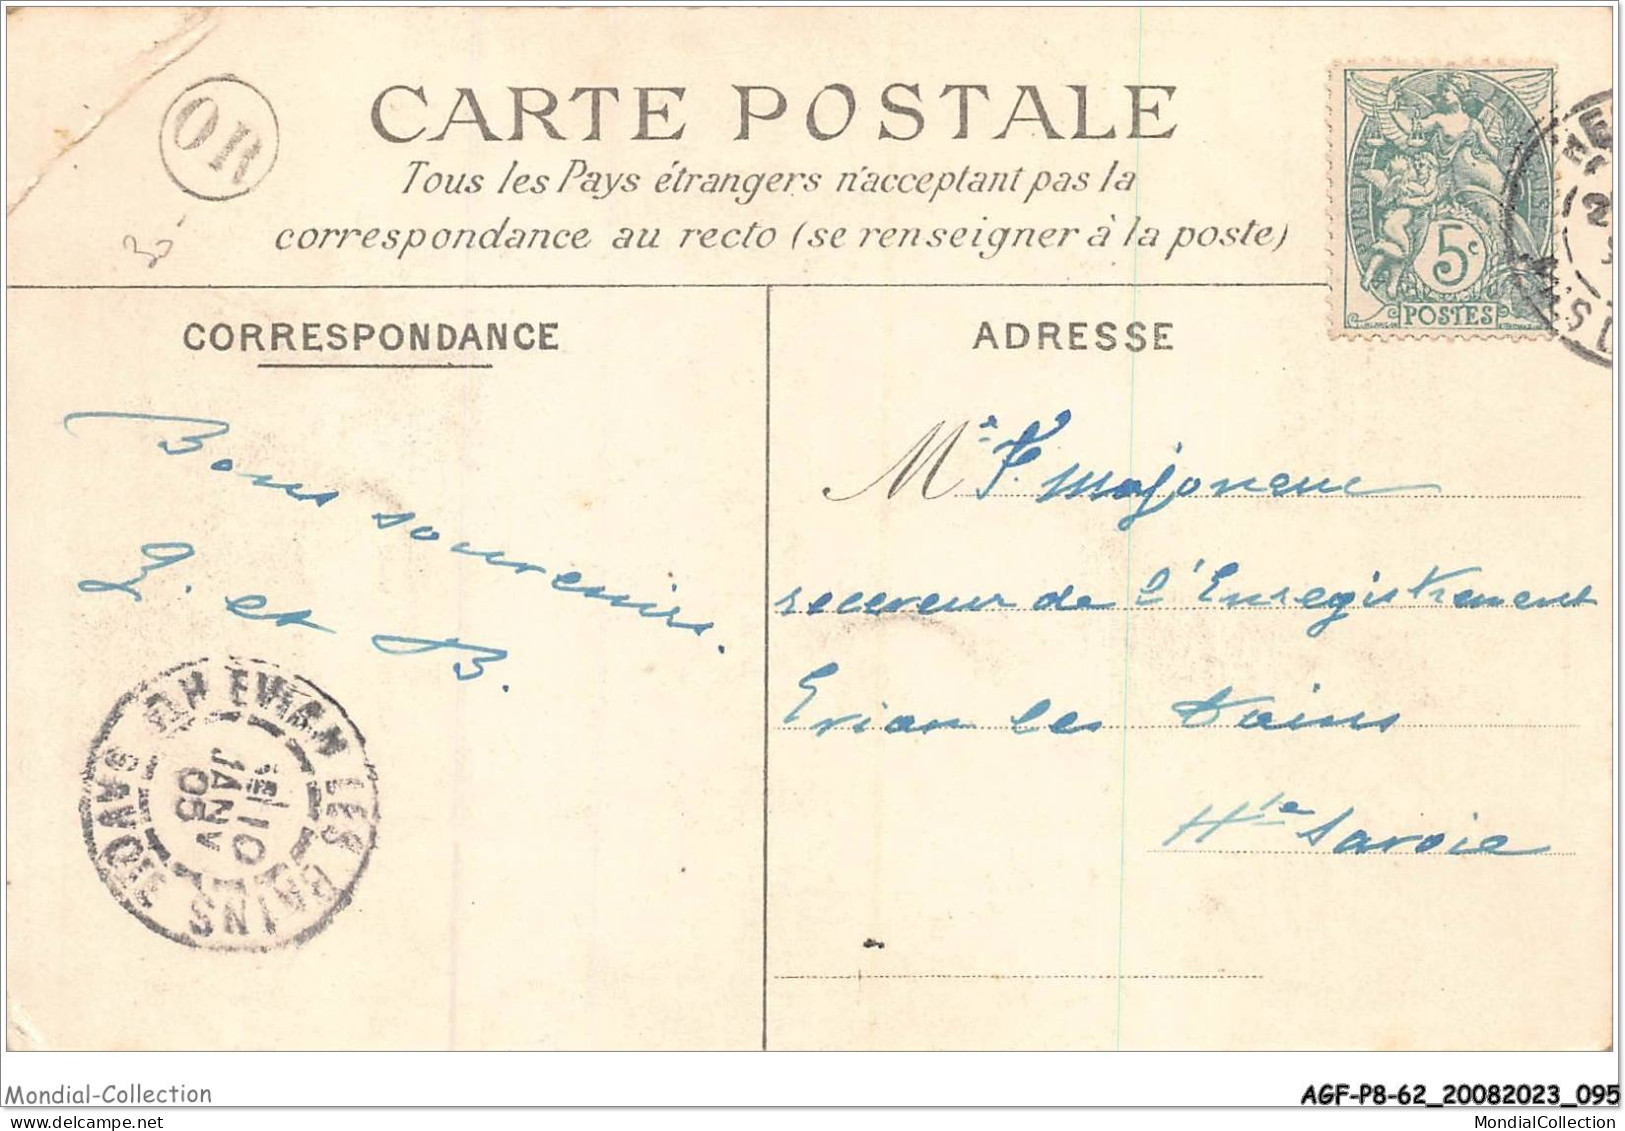 OR
CARTE POSTALE
Tous les Pays étrangers n'acceptant pas la
correspondance au recto (se renseigner à la poste)
5c
POSTES
CORRESPONDANCE
ADRESSE
Bons souvenirs.
et B.
Mr F. Majoneur
receveur de l'Enregistrement
Evian les Bains
Hte Savoie
EVIAN LES BAINS
10
JANV
05
HTE SAVOIE
Mondial-Collection
AGF-P8-62_20082023_095
MondialCollection